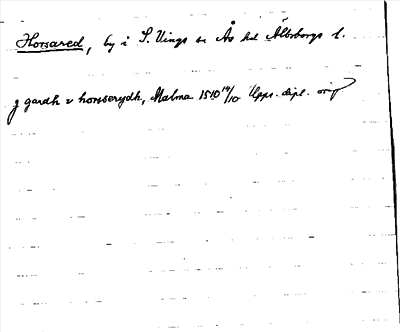 Horsared, by i S. Vings sn Ås hd Älvsborgs l.
j gardh z horsserydh, Malma 1510 14/10 Upps. dipl. orig